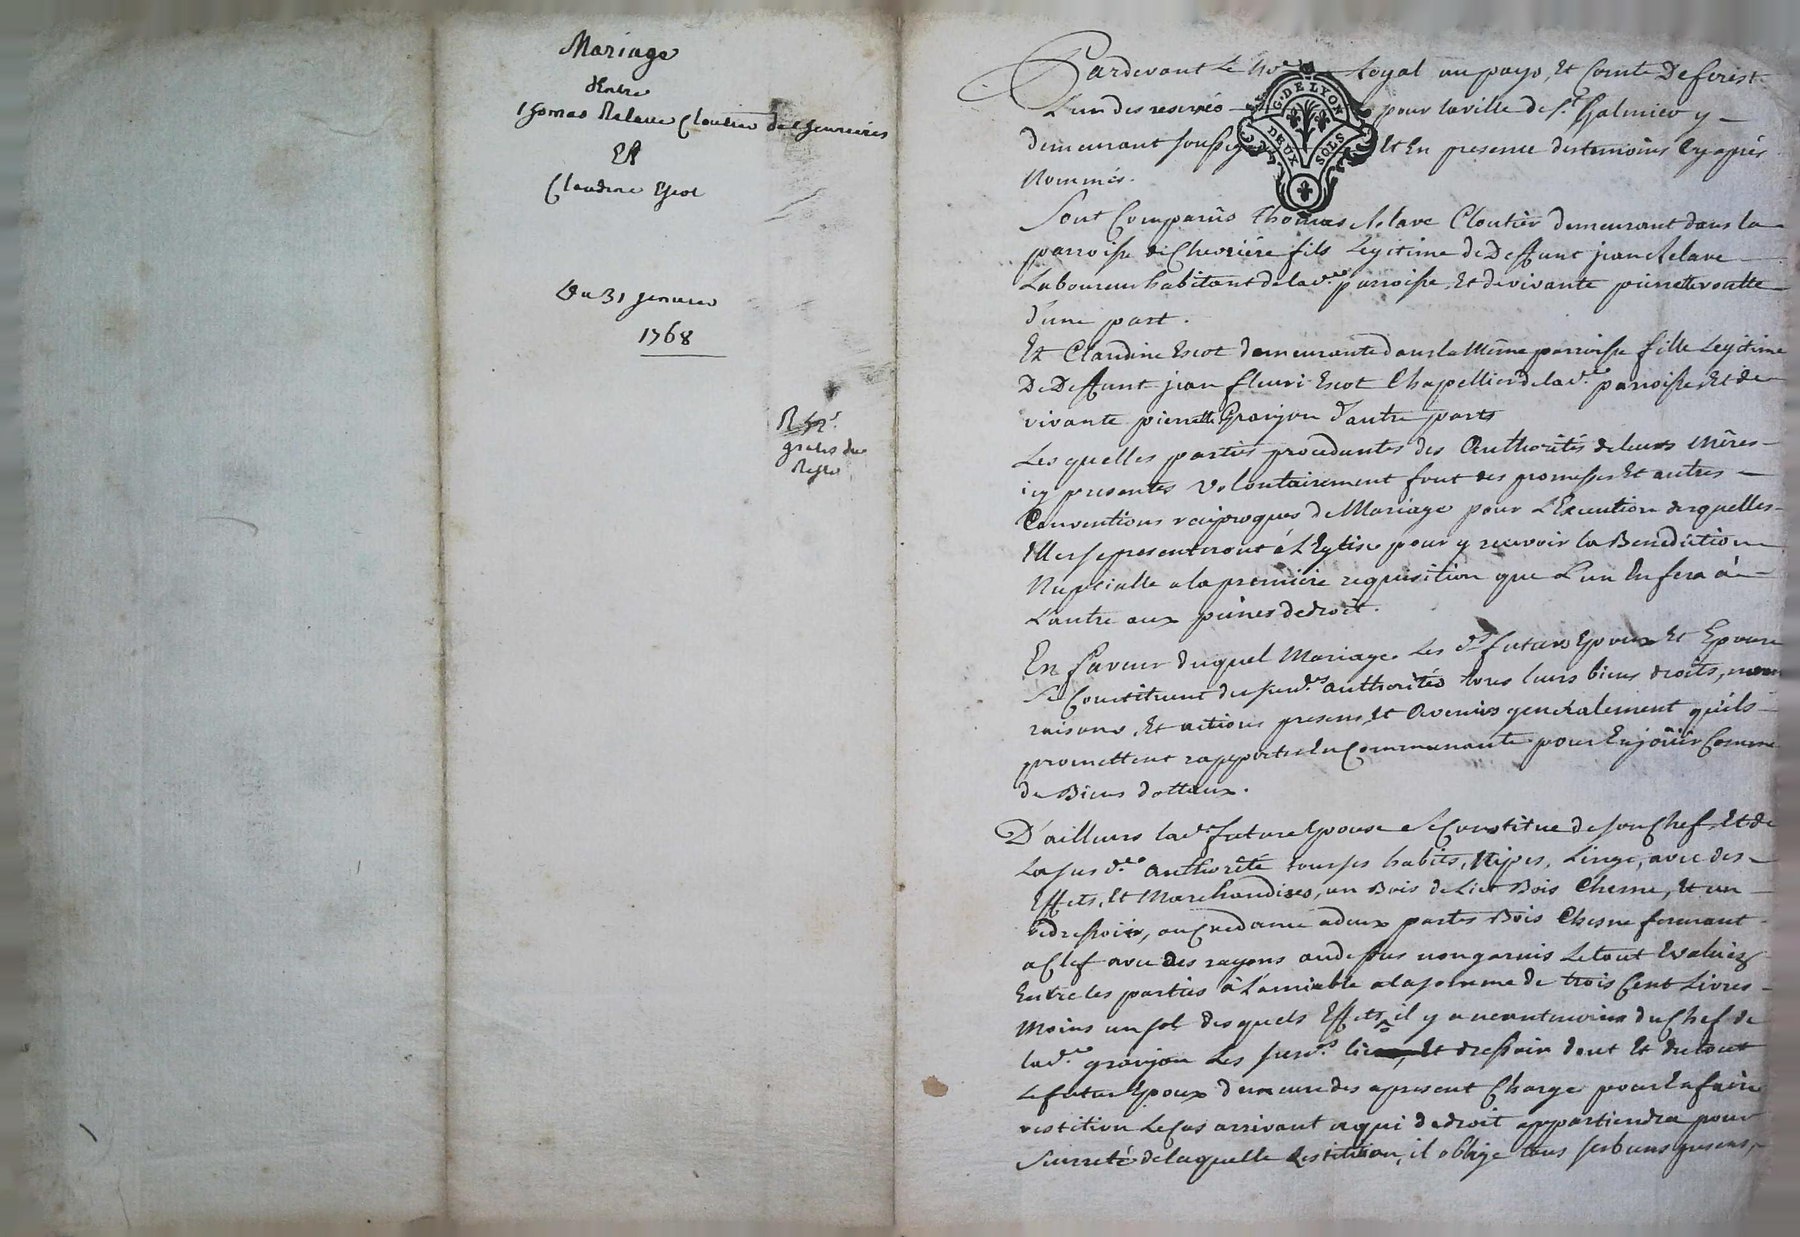 Mariage
d'Entre
Thomas Relave Cloutier de Chevrieres
Et
Claudine Escot
Du 31 janvier
1768
gratis du
Pardevant Le No.re Royal au pays, Et Comté De forest
L'un des reservés pour la ville de S.t Galmier y
demeurant soussigné Et En presence des temoins Cy après
Nommés.
Sont Comparûs Thomas Relave Cloutier demeurant dans la
parroisse de Chevriére fils Legitime de Deffunt jean Relave
Laboureur habitant de lad.te parroisse, Et de vivante pierrette
d'une part.
Et Claudine Escot demeurante dans la Même parroisse fille Legitime
De Deffunt jean fleuri Escot Chapellier de lad.te parroisse, Et de
vivante pierrette Granjon d'autre parts
Les quelles parties procedantes des Authorités de leurs Mêres
icy presentes volontairement font des promesses Et autres
Conventions reciproques de Mariage pour L'Execution desquelles
Elles se presenteront à L'Eglise pour y recevoir la Benediction
Nuptialle a la premiére requisition que L'un En fera à
L'autre aux peines de droit.
En faveur duquel Mariage Les d.ts futurs Epoux Et Epouse
Se Constituent des susd.es authorités tous leurs biens droits, noms
raisons, Et actions presens, Et Avenirs generalement qu'ils
promettent rapporter En Communauté pour En joüir Comme
de Biens dotteaux.
D'ailleurs lad.te future Epouse Se Constitue de son Chef, Et de
La susd.te Authorité tous ses habits, Nipes, Linge, avec des
Effets, Et Marchandises, un Bois de Lict Bois Chesne, Et un
dressoir, ou Credance a deux portes Bois Chesne fermant
a Clef avec des rayons au dessus non garnis Le tout Evalué
Entre les parties à L'amiable a la somme de trois Cent Livres
Moins un sol desquels Effets il y a neantmoins du Chef de
lad.te granjon Les susd.ts Et dressoir dont Et du tout
Le futur Epoux demeure des apresent Chargé pour En faire
restition Le Cas arrivant a qui de droit appartiendra pour
Seurreté de laquelle Restitution, il oblige tous ses biens presens,